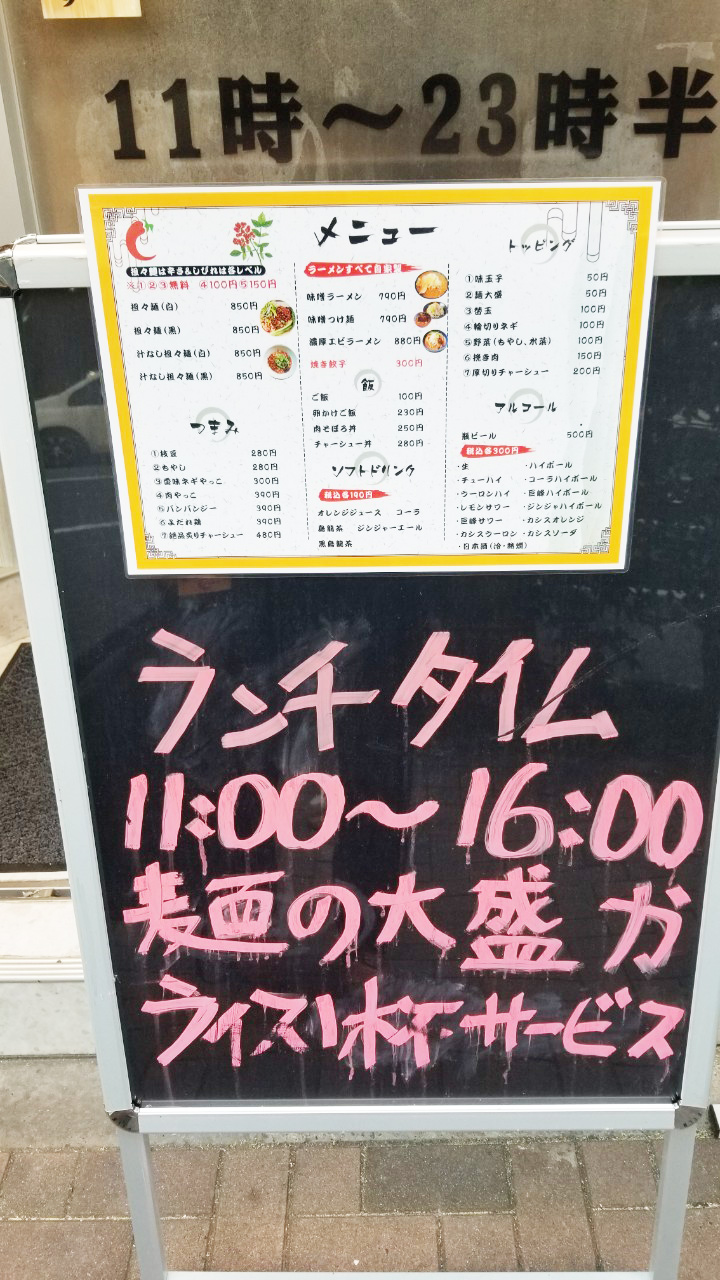 す
11時〜23時半
メニュー
担々麺は辛さ&しびれは各レベル
※①②③無料 ④100円⑤150円
担々麺(白) 850円
担々麺(黒) 850円
汁なし担々麺(白) 850円
汁なし担々麺(黒) 850円
つまみ
①枝豆 280円
②もやし 280円
③壺味ネギやっこ 300円
④肉やっこ 390円
⑤バンバンジー 390円
⑥よだれ鶏 390円
⑦絶品炙りチャーシュー 480円
ラーメンすべて自家製
味噌ラーメン 790円
味噌つけ麺 790円
濃厚エビラーメン 880円
焼き餃子 300円
飯
ご飯 100円
卵かけご飯 230円
肉そぼろ丼 250円
チャーシュー丼 280円
ソフトドリンク
税込各190円
オレンジジュース コーラ
烏龍茶 ジンジャーエール
黒烏龍茶
トッピング
①味玉子 50円
②麺大盛 50円
③替玉 100円
④輪切りネギ 100円
⑤野菜(もやし、水菜) 100円
⑥挽き肉 150円
⑦厚切りチャーシュー 200円
アルコール
瓶ビール 500円
税込各300円
・生 ・ハイボール
・チューハイ ・コーラハイボール
・ウーロンハイ ・巨峰ハイボール
・レモンサワー ・ジンジャハイボール
・巨峰サワー ・カシスオレンジ
・カシスウーロン ・カシスソーダ
・日本酒(冷・熱燗)
ランチタイム
11:00〜16:00
麺の大盛か
ライス1杯サービス